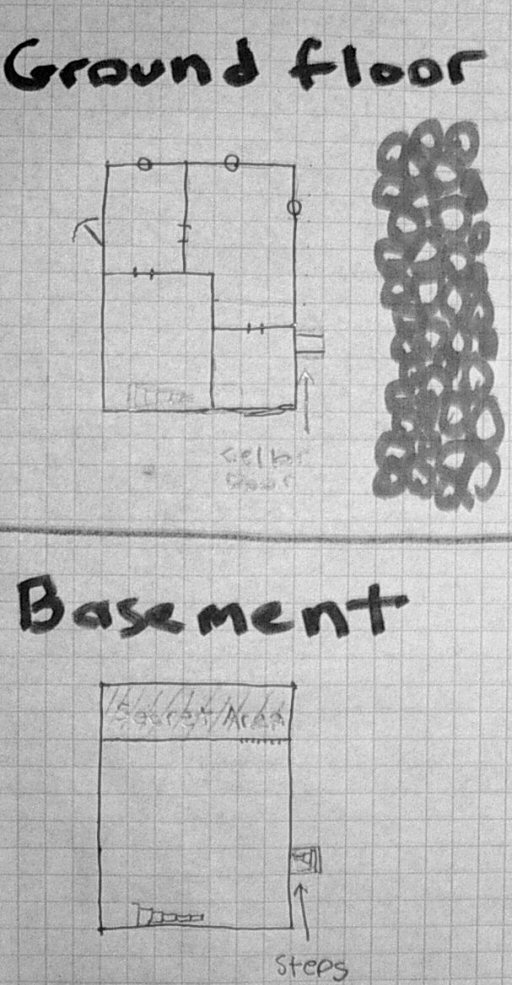 Ground floor
Cellar
Door
Basement
Secret Area
Steps